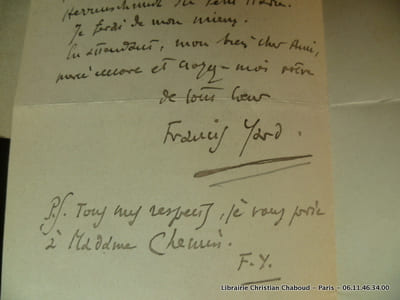 Je ferai de mon mieux.
En attendant, mon bien cher Ami,
merci encore et croyez-moi vôtre
de tout cœur
Francis Yard.
P.S. Tous mes respects, je vous prie
à Madame Chemin.
F.Y.
Librairie Christian Chaboud - Paris - 06.11.46.34.00